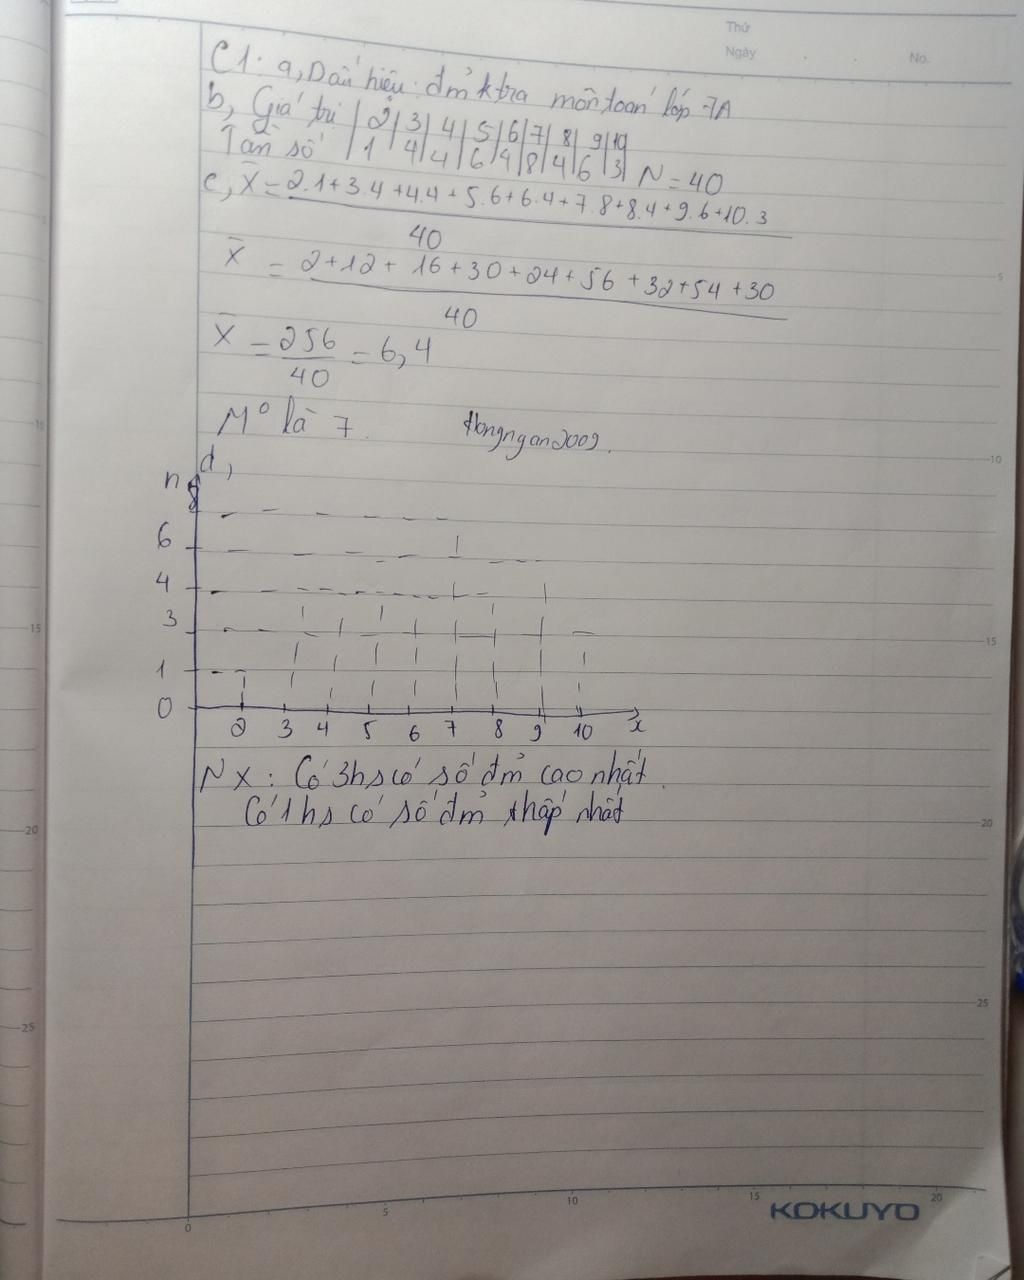 Thứ
Ngày . . No.
C1: a, Dấu hiệu: đm̉ ktra môn toán lớp 7A
b, Giá trị | 2 | 3 | 4 | 5 | 6 | 7 | 8 | 9 | 10
Tần số | 1 | 4 | 4 | 6 | 4 | 8 | 4 | 6 | 3 | N = 40
c, X̄ = 2.1+3.4+4.4+5.6+6.4+7.8+8.4+9.6+10.3
40
X̄ = 2+12+16+30+24+56+32+54+30
40
X̄ = 256 = 6,4
40
M° là 7. Hongngan2009.
d,
n
8
6
4
3
1
0
2 3 4 5 6 7 8 9 10 x
NX: Có 3hs có số đm̉ cao nhất.
Có 1 hs có số đm̉ thấp nhất
5
10
15
20
25
15
20
25
0 5 10 15 20
KOKUYO